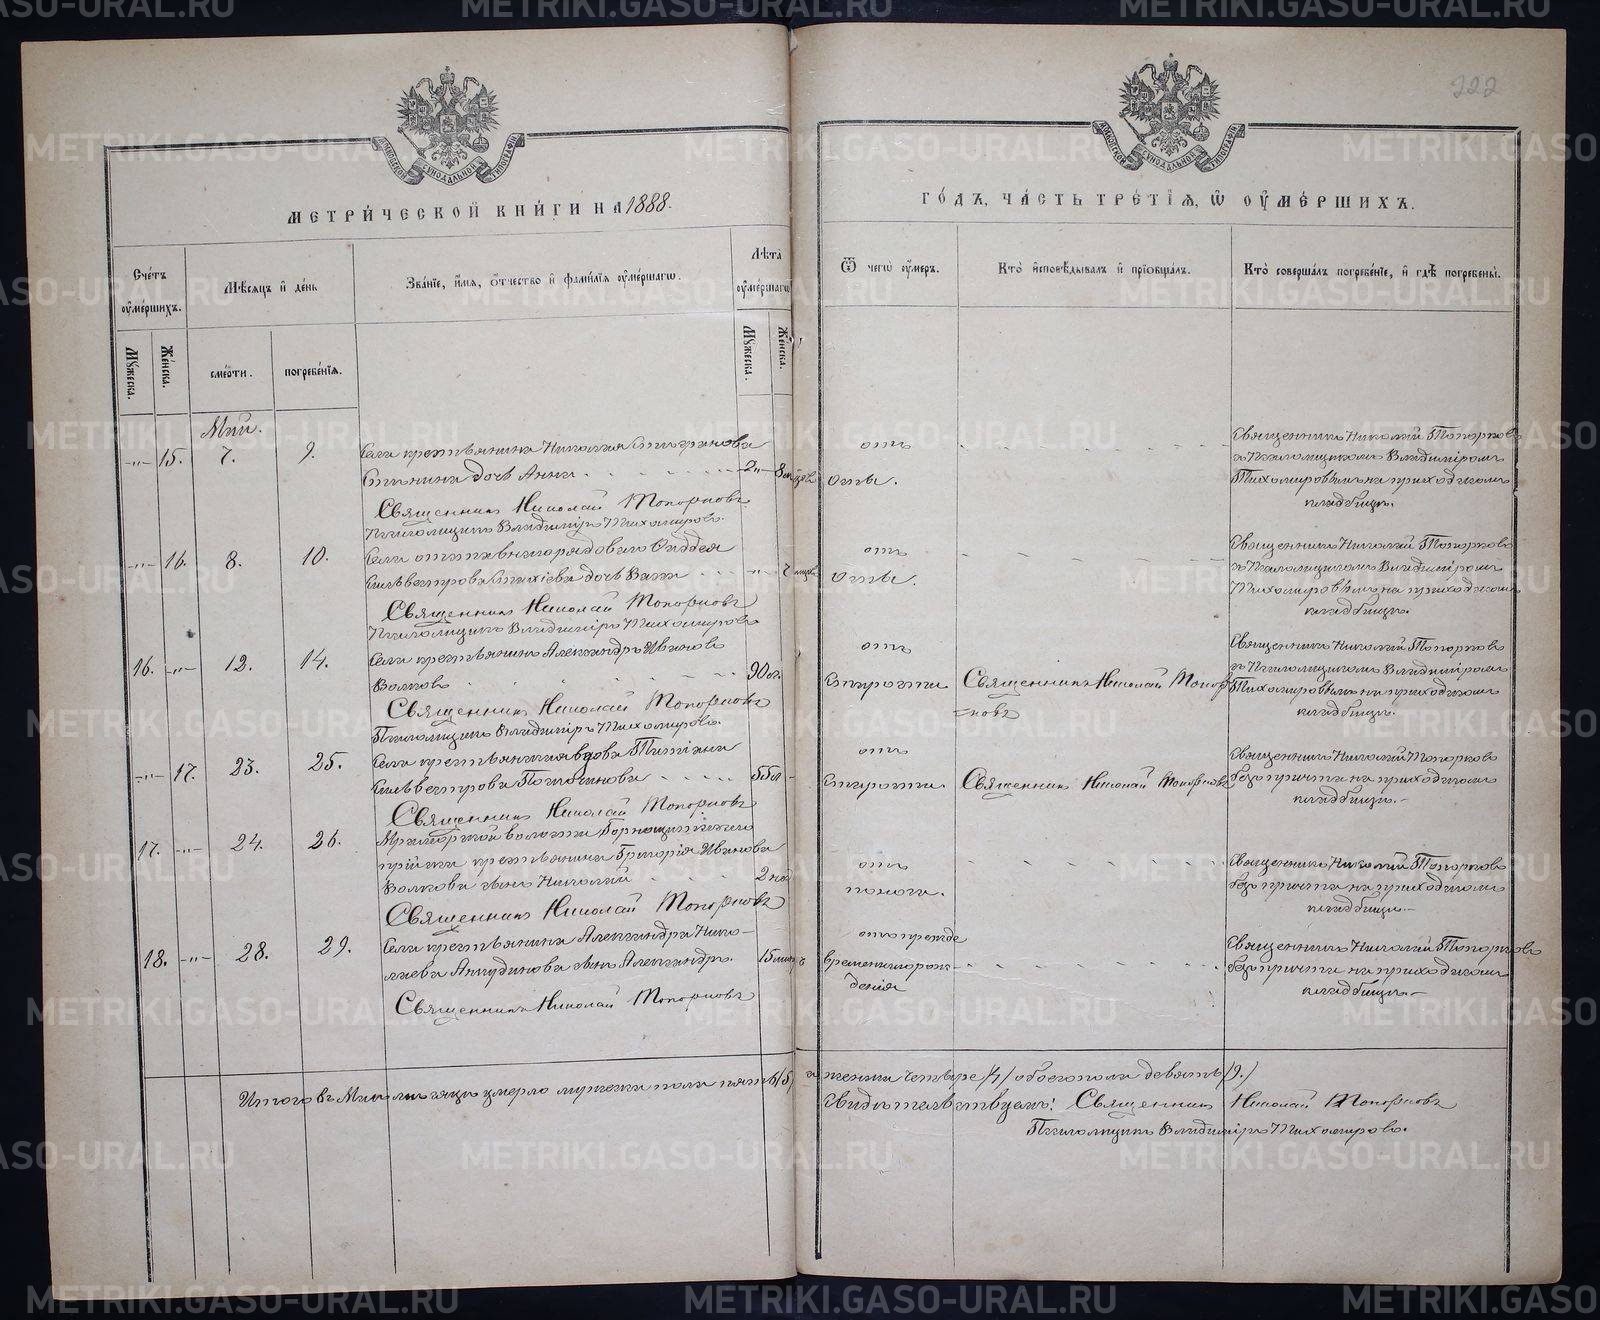 222
МОСКОВСКОЙ СѴНОДАЛЬНОЙ ТИПОГРАФІИ
МОСКОВСКОЙ СѴНОДАЛЬНОЙ ТИПОГРАФІИ
МЕТРИ́ЧЕСКОЙ КНИ́ГИ НА 1888.
ГО́ДЪ, ЧА́СТЬ ТРЕ́ТІѦ, Ѿ ОУ҆МЕ́РШИХЪ.
Сче́тъ оу҆ме́ршихъ.
Мѣ́сѧцъ и҆ де́нь
Зва́нїе, и҆́мѧ, о҆́тчество и҆ фами́лїѧ оу҆ме́ршагѡ.
Лѣ́та оу҆ме́ршагѡ
Ѿ чегѡ̀ оу҆́меръ.
Кто̀ и҆сповѣ́дывалъ и҆ прїѡбща́лъ.
Кто̀ соверша́лъ погребе́нїе, и҆ гдѣ̀ погребены̀.
Мꙋ́жеска.
Же́нска.
сме́рти.
погребе́нїѧ.
Мꙋ́жеска.
Же́нска.
Май.
-„- 15. 7. 9. Села крестьянина Николая
дочь Анна 2
Священникъ Николай Топорковъ
Псаломщикъ Владиміръ Тихомировъ.
отъ
оспы.
Священникъ Николай Топорковъ
съ Псаломщикомъ Владиміромъ
Тихомировымъ на приходскомъ
кладбищѣ.
-„- 16. 8. 10. Села отставнаго рядоваго Фаддея
Сильвестрова дочь
Священникъ Николай Топорковъ
Псаломщикъ Владиміръ Тихомировъ
отъ
оспы.
Священникъ Николай Топорковъ
съ Псаломщикомъ Владиміромъ
Тихомировымъ на приходскомъ
кладбищѣ.
16. -„- 12. 14. Села крестьянинъ Александръ Ивановъ
Волковъ 90
Священникъ Николай Топорковъ
Псаломщикъ Владиміръ Тихомировъ.
отъ
старости
Священникъ Николай Топор
=ковъ
Священникъ Николай Топорковъ
съ Псаломщикомъ Владиміромъ
Тихомировымъ на приходскомъ
кладбищѣ.
-„- 17. 23. 25. Села крестьянская вдова Татіана
Сильвестрова 55
Священникъ Николай Топорковъ
отъ
старости.
Священникъ Николай Топорковъ
Священникъ Николай Топорковъ
безъ причта на приходскомъ
кладбищѣ.-
17. -„- 24. 26. Мраморской волости Горнощитскаго
крестьянина Григорія Иванова
Волкова сынъ Николай 2
Священникъ Николай Топорковъ
отъ
поноса.
Священникъ Николай Топорковъ
безъ причта на приходскомъ
кладбищѣ.-
18. -„- 28. 29. Села крестьянина Александра Нико-
лаева сынъ Александръ. 15
Священникъ Николай Топорковъ
отъ прежде
временнаго рож-
денія
Священникъ Николай Топорковъ
безъ причта на приходскомъ
кладбищѣ.-
Итого въ Маѣ мѣсяцѣ умерло мужеска пола пять /5/ и женска четыре /4/ обоего пола девять /9./
Свидѣтельствуемъ: Священникъ Николай Топорковъ
Псаломщикъ Владиміръ Тихомировъ.
METRIKI.GASO-URAL.RU